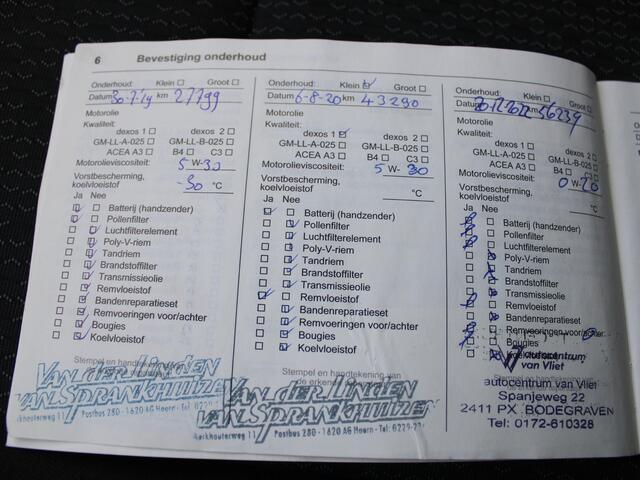 6 Bevestiging onderhoud
Onderhoud: Klein Groot
Datum 30-7-19 km 27799
Motorolie
Kwaliteit:
dexos 1 dexos 2
GM-LL-A-025 GM-LL-B-025
ACEA A3 B4 C3
Motorolieviscositeit: 5 W-30
Vorstbescherming,
koelvloeistof -30 °C
Ja Nee
Batterij (handzender)
Pollenfilter
Luchtfilterelement
Poly-V-riem
Tandriem
Brandstoffilter
Transmissieolie
Remvloeistof
Bandenreparatieset
Remvoeringen voor/achter
Bougies
Koelvloeistof
Stempel en handtekening van
VAN DER LINDEN
VAN SPRANKHUIZEN
Postbus 280 - 1620 AG Hoorn - Tel.
Onderhoud: Klein Groot
Datum 6-8-20 km 43290
Motorolie
Kwaliteit:
dexos 1 dexos 2
GM-LL-A-025 GM-LL-B-025
ACEA A3 B4 C3
Motorolieviscositeit: 5 W-30
Vorstbescherming,
koelvloeistof °C
Ja Nee
Batterij (handzender)
Pollenfilter
Luchtfilterelement
Poly-V-riem
Tandriem
Brandstoffilter
Transmissieolie
Remvloeistof
Bandenreparatieset
Remvoeringen voor/achter
Bougies
Koelvloeistof
Stempel en handtekening van
de erkende
VAN DER LINDEN
VAN SPRANKHUIZEN
Kerkhouterweg 11 Postbus 280 - 1620 AG Hoorn - Tel. 0229-
Onderhoud: Klein Groot
Datum km 56239
Motorolie
Kwaliteit:
dexos 1 dexos 2
GM-LL-A-025 GM-LL-B-025
ACEA A3 B4 C3
Motorolieviscositeit: 0 W-20
Vorstbescherming,
koelvloeistof °C
Ja Nee
Batterij (handzender)
Pollenfilter
Luchtfilterelement
Poly-V-riem
Tandriem
Brandstoffilter
Transmissieolie
Remvloeistof
Bandenreparatieset
Remvoeringen voor/achter
Bougies
Koelvloeistof
autocentrum
van Vliet
autocentrum van Vliet
Spanjeweg 22
2411 PX BODEGRAVEN
Tel: 0172-610328